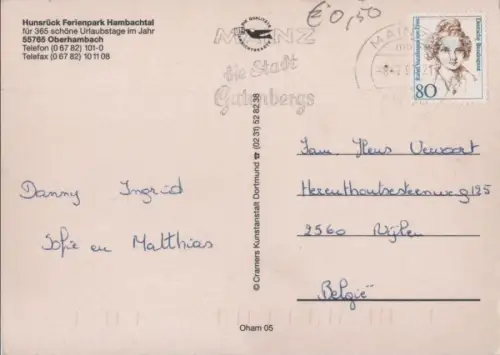 Hunsrück Ferienpark Hambachtal
für 365 schöne Urlaubstage im Jahr
55765 Oberhambach
Telefon (0 67 82) 101-0
Telefax (0 67 82) 10 11 08
€ 0,50
MAINZ
die Stadt
Gutenbergs
MAINZ
Deutsche Bundespost
80
Danny Ingrid
Sofie en Matthias
© Cramers Kunstanstalt Dortmund ☎ (02 31) 52 82 38
Fam. Heus Vervoort
Herenthoutsesteenweg 125
2560 Nijlen
België
Oham 05